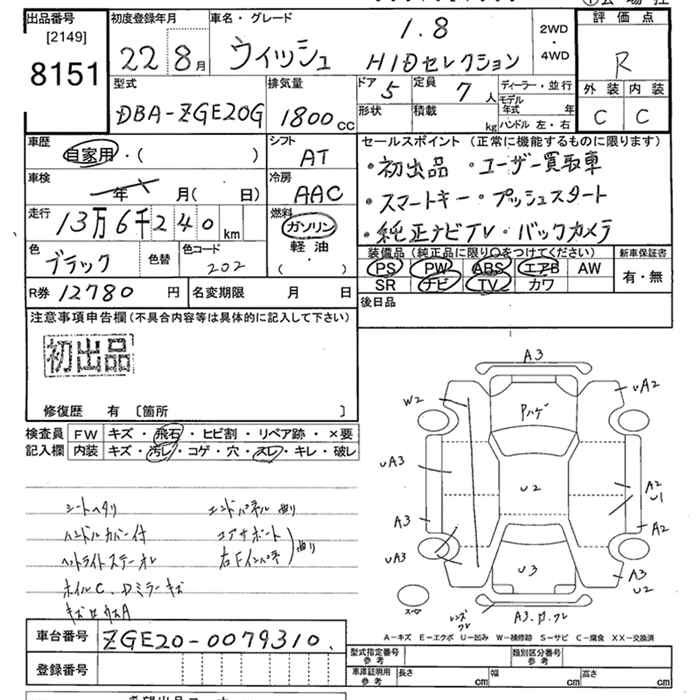 出品番号 初度登録年月 車名・グレード 評価点
[2149]
8151
22 8月 ウィッシュ 1.8 HIDセレクション
2WD・4WD
R
外装 内装
C C
型式 排気量 ドア 定員 ディーラー・並行
DBA-ZGE20G 1800cc 5 7人
モデル年式 年
形状 積載 kg ハンドル 左・右
車歴 シフト セールスポイント (正常に機能するものに限ります)
自家用・( ) AT
・初出品 ・ユーザー買取車
車検 冷房
年 月( 日) AAC
・スマートキー・プッシュスタート
走行 燃料
13万6千240km ガソリン
軽油
・( )
・純正ナビTV・バックカメラ
色 色替 色コード
ブラック 202
装備品 (純正品に限り○をつけてください) 新車保証書
PS PW ABS エアB AW 有・無
SR ナビ TV カワ
R券 12780円 名変期限 月 日
後日品
注意事項申告欄 (不具合内容等は具体的に記入して下さい)
初出品
修復歴 有 〔箇所 〕
検査員記入欄 FW キズ・飛石・ヒビ割・リペア跡・×要
内装 キズ・汚レ・コゲ・穴・スレ・キレ・破レ
シートヘタリ
ハンドルカバー付
ヘッドライトステーオレ
ホイルC、Dミラーキズ
エンドパネル曲り
コアサポート
右Fインパネ 曲り
A3
W2
Pハゲ
uA2
uA3
u2
A2
u1
A3
A2
uA3
u3
A3
u2
スペア
レンズワレ
A3.ワレ
A-キズ E-エクボ U-凹み W-補修跡 S-サビ C-腐食 XX-交換済
車台番号 ZGE20-0079310.
登録番号
型式指定番号 参考 類別区分番号 参考
車庫証明用 参考 長さ cm 幅 cm 高さ cm